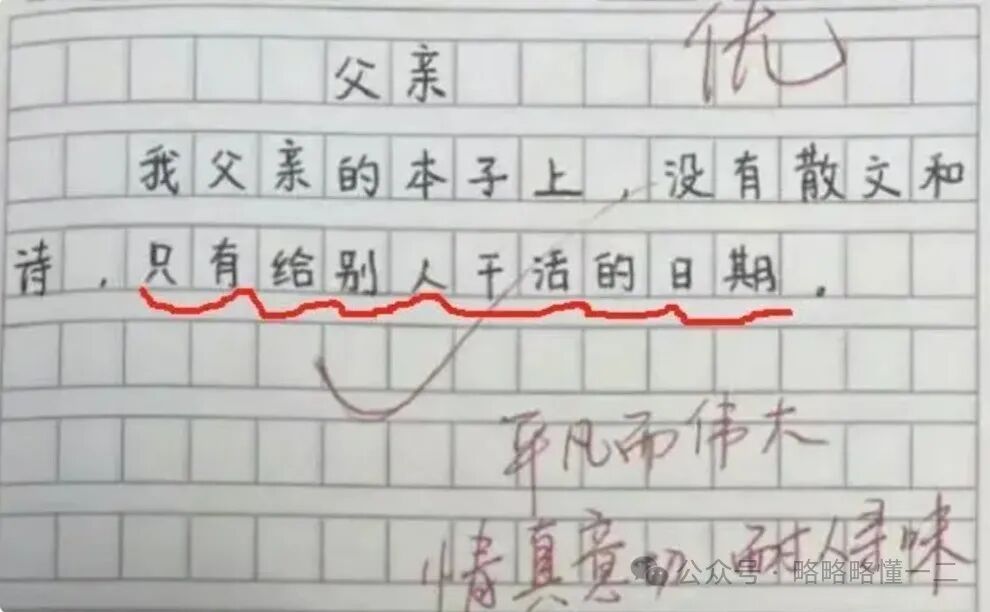 优
父亲
我父亲的本子上，没有散文和
诗，只有给别人干活的日期。
平凡而伟大
情真意切 耐人寻味
公众号·略略略懂一二